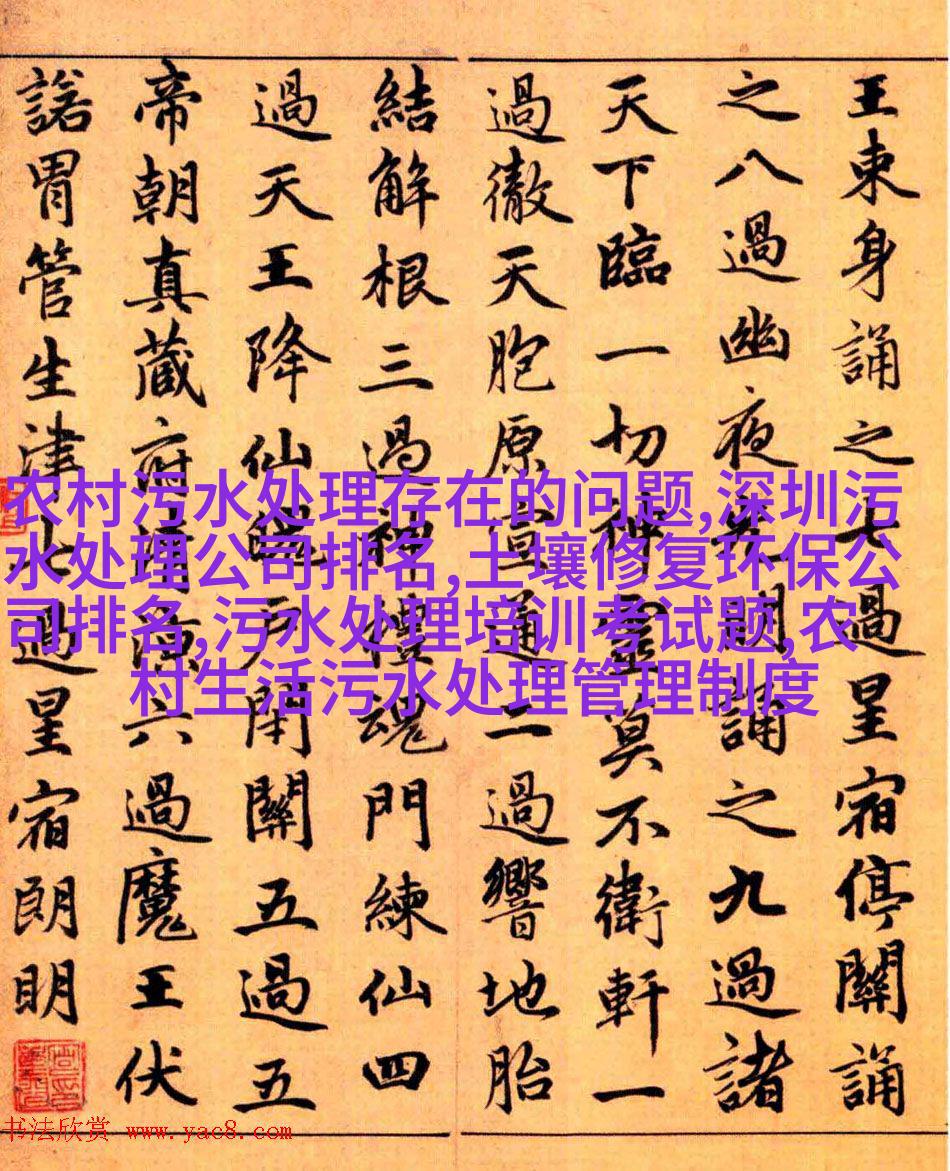 王束身誦之七過星宿停關誦
之八過幽夜光開誦之九過諸
天下臨一切神靈莫不衛軒一
過徹天胞原宣通二過響地胎
結解根三過神禮魂門練仙四
過天王降仙戶開關五過五
帝朝真藏府清涼六過魔王伏
諾胃管生津七過星宿朗明
农村污水处理存在的问题,深圳污
水处理公司排名,土壤修复环保公
司排名,污水处理培训考试题,农
村生活污水处理管理制度
书法欣赏 www.yac8.com